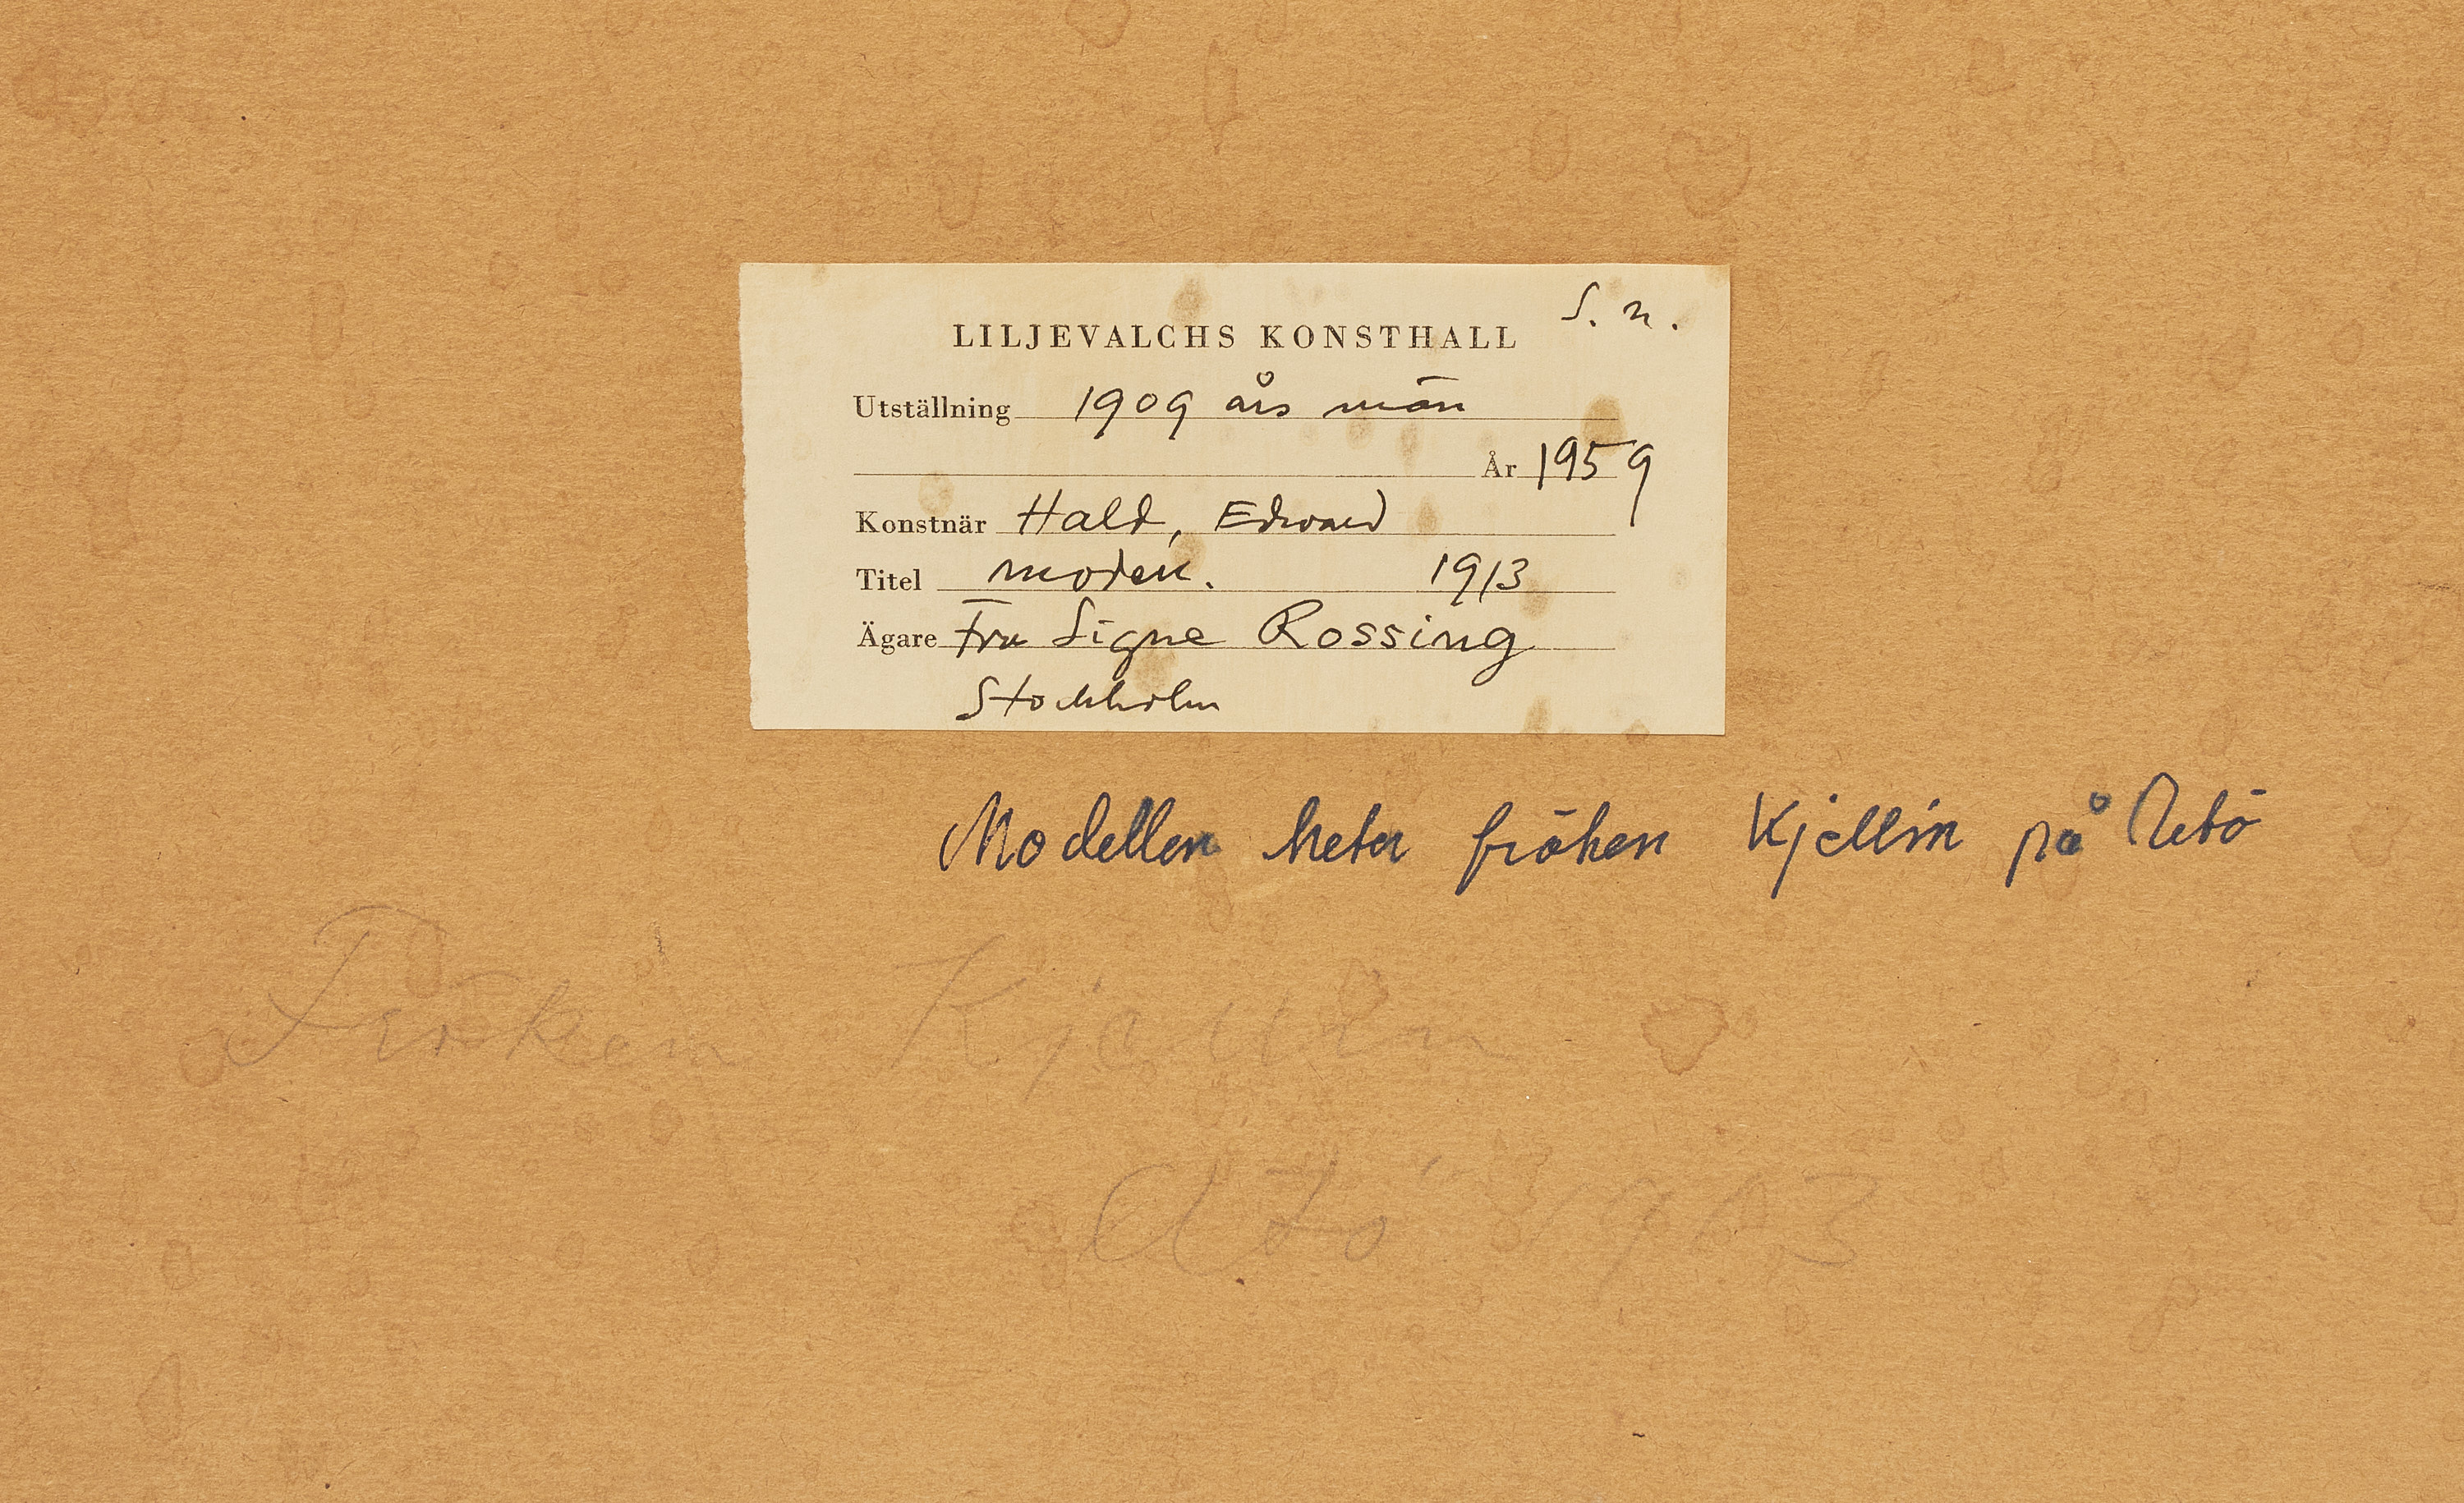 S. n.
LILJEVALCHS KONSTHALL
Utställning 1909 års män
År 1959
Konstnär Hald, Edward
Titel 1913
Ägare Fru Signe Rossing
Stockholm
Modellen heter fröken Kjellin på Utö
Fröken Kjellin
Utö 1913